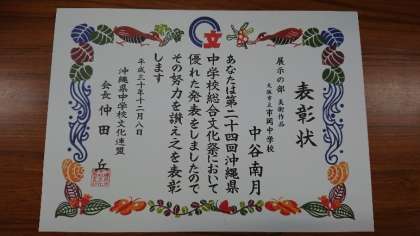 表彰状
展示の部 美術作品
市岡中学校
中谷南月
あなたは第二十四回沖縄県
中学校総合文化祭において
優れた発表をしましたので
その努力を讃え之を表彰
します
平成三十年十二月八日
沖縄県中学校文化連盟
会長 仲田